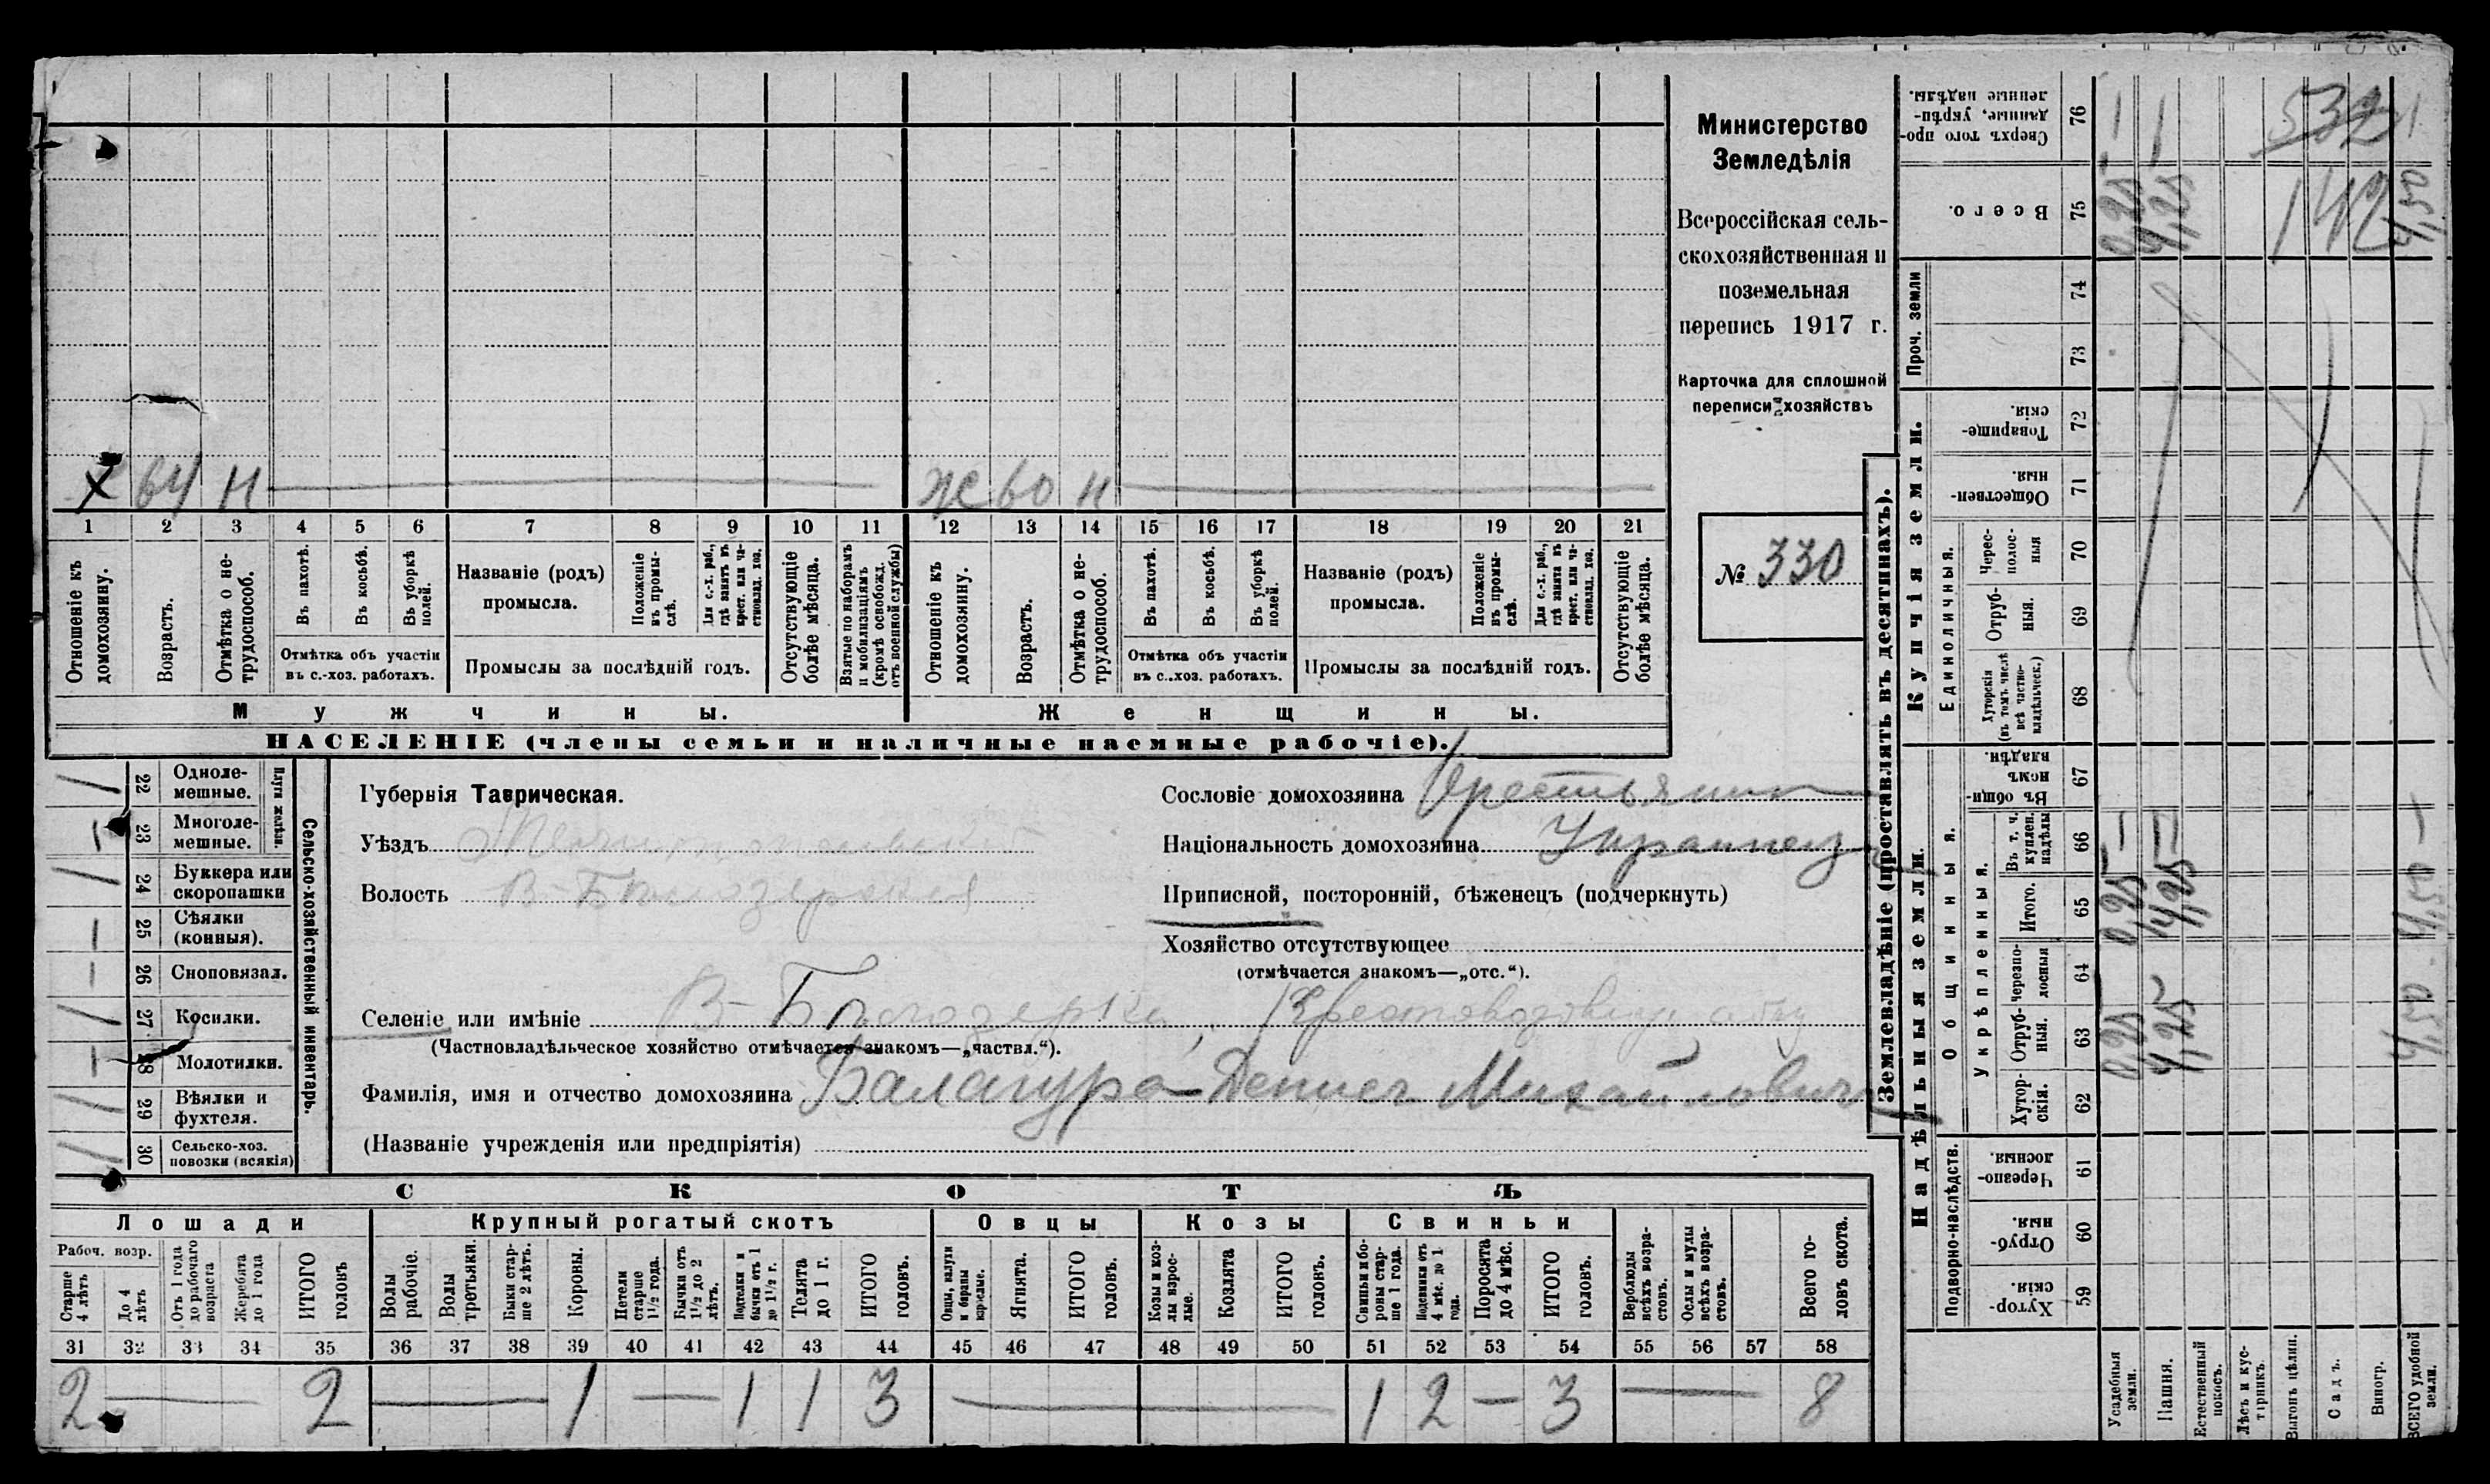 Министерство
Земледѣлія
Всероссійская сель-
скохозяйственная и
поземельная
перепись 1917 г.
Карточка для сплошной
переписи хозяйствъ
№ 330
Х 64 Н
Ж 60 Н
1 2 3 4 5 6 7 8 9 10 11 12 13 14 15 16 17 18 19 20 21
Отношеніе къ домохозяину.
Возрастъ.
Отмѣтка о не-трудоспособ.
Въ пахотѣ.
Въ косьбѣ.
Въ уборкѣ полей.
Отмѣтка объ участіи
въ с.-хоз. работахъ.
Названіе (родъ)
промысла.
Положеніе въ промы-слѣ.
Для с.-х. раб., гдѣ занятъ въ крест. или ча-стновлад. хоз.
Промыслы за послѣдній годъ.
Отсутствующіе болѣе мѣсяца.
Взятые по наборамъ и мобилизаціямъ (кромѣ освобожд. отъ военной службы)
Отношеніе къ домохозяину.
Возрастъ.
Отмѣтка о не-трудоспособ.
Въ пахотѣ.
Въ косьбѣ.
Въ уборкѣ полей.
Отмѣтка объ участіи
въ с.-хоз. работахъ.
Названіе (родъ)
промысла.
Положеніе въ промы-слѣ.
Для с.-х. раб., гдѣ занята въ крест. или ча-стновлад. хоз.
Промыслы за послѣдній годъ.
Отсутствующіе болѣе мѣсяца.
Мужчины.
Женщины.
НАСЕЛЕНІЕ (члены семьи и наличные наемные рабочіе).
Сельско-хозяйственный инвентарь.
Плуги желѣзн.
22 Одноле-мешные.
23 Многоле-мешные.
24 Буккера или скоропашки
25 Сѣялки (конныя).
26 Сноповязал.
27 Косилки.
28 Молотилки.
29 Вѣялки и фухтеля.
30 Сельско-хоз. повозки (всякія)
Губернія Таврическая.
Уѣздъ Мелитопольскій
Волость В-Бѣлозерская
Сословіе домохозяина Крестьянин
Національность домохозяина Украинец
Приписной, посторонній, бѣженецъ (подчеркнуть)
Хозяйство отсутствующее
(отмѣчается знакомъ—„отс.“).
Селеніе или имѣніе В-Бѣлозерка,
(Частновладѣльческое хозяйство отмѣчается знакомъ—„частвл.“).
Фамилія, имя и отчество домохозяина Балагура Денисъ Михайлович
(Названіе учрежденія или предпріятія)
СКОТЪ
Лошади
Крупный рогатый скотъ
Овцы
Козы
Свиньи
Рабоч. возр.
Старше 4 лѣтъ
До 4 лѣтъ
Отъ 1 года до рабочаго возраста
Жеребята до 1 года
ИТОГО головъ
Волы рабочіе.
Волы третьяки.
Быки стар-ше 2 лѣтъ.
Коровы.
Нетели старше 1½ года.
Бычки отъ 1½ до 2 лѣтъ.
Подтелки и бычки отъ 1 до 1½ г.
Телята до 1 г.
ИТОГО головъ.
Овцы, валухи и бараны взрослые.
Ягнята.
ИТОГО головъ.
Козы и коз-лы взрос-лые.
Козлята
ИТОГО головъ.
Свиньи и бо-ровы стар-ше 1 года.
Подсвинки отъ 4 мѣс. до 1 года.
Поросята до 4 мѣс.
ИТОГО головъ.
Верблюды всѣхъ возра-стовъ.
Ослы и мулы всѣхъ возра-стовъ.
Всего го-ловъ скота.
31 32 33 34 35 36 37 38 39 40 41 42 43 44 45 46 47 48 49 50 51 52 53 54 55 56 57 58
2 — 2 — 1 — 1 1 3 — 1 2 — 3 — 8
Землевладѣніе (проставлять въ десятинахъ).
Купчія земли.
Надѣльныя земли.
Проч. земли
Единоличныя.
Общинныя.
Укрѣпленныя.
Подворно-наслѣдств.
Сверхъ того про-данные, укрѣп-ленные надѣлы. 76
Всего. 75
74
73
Товарище-скія. 72
Обществен-ныя 71
Черес-полос-ныя 70
Отруб-ныя. 69
Хуторскія (въ томъ числѣ всѣ частно-владѣльческ.) 68
Въ общи-номъ владѣн. 67
Въ т. ч. куплен. надѣлы 66
Итого. 65
Черезпо-лосныя 64
Отруб-ныя. 63
Хутор-скія. 62
Черезпо-лосныя. 61
Отруб-ныя 60
Хутор-скія 59
Усадебныя земли.
Пашня.
Естественный покосъ.
Лѣсъ и кус-тарникъ.
Выгонъ цѣлин.
Садъ.
Виногр.
ВСЕГО удобной земли.
532
142
0,25 4,25 4,50
0,25 4,25 4,50
0,25 4,25 4,50